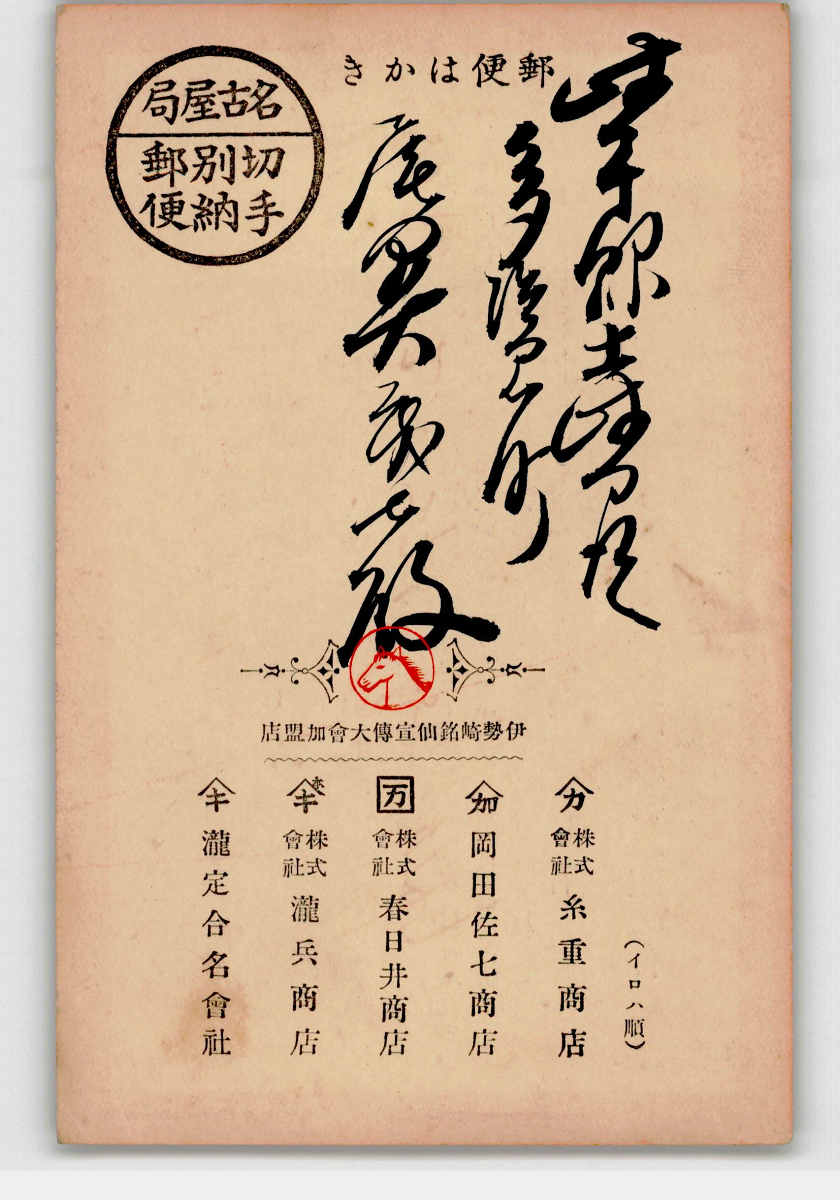 郵便はかき
名古屋局
切手別納郵便
岐阜縣土岐郡
多治見町
七殿
伊勢崎銘仙宣傳大會加盟店
(イロハ順)
カ 株式會社 糸重商店
加 岡田佐七商店
万 株式會社 春日井商店
キ 株式會社 瀧兵商店
キ 瀧定合名會社